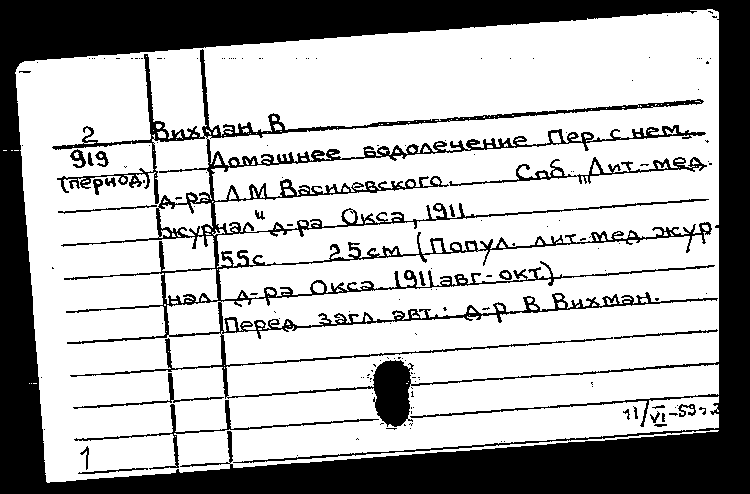 2 Вихман, В
919 Домашнее водолечение Пер. с нем.
(период.) д-ра Л.М. Василевского. Спб. „Лит-мед.
журнал" д-ра Окса, 1911.
55с. 25см (Попул. лит-мед. жур-
нал д-ра Окса 1911 авг.-окт.).
Перед загл. авт.: д-р. В. Вихман.
11/VI-59г.
1